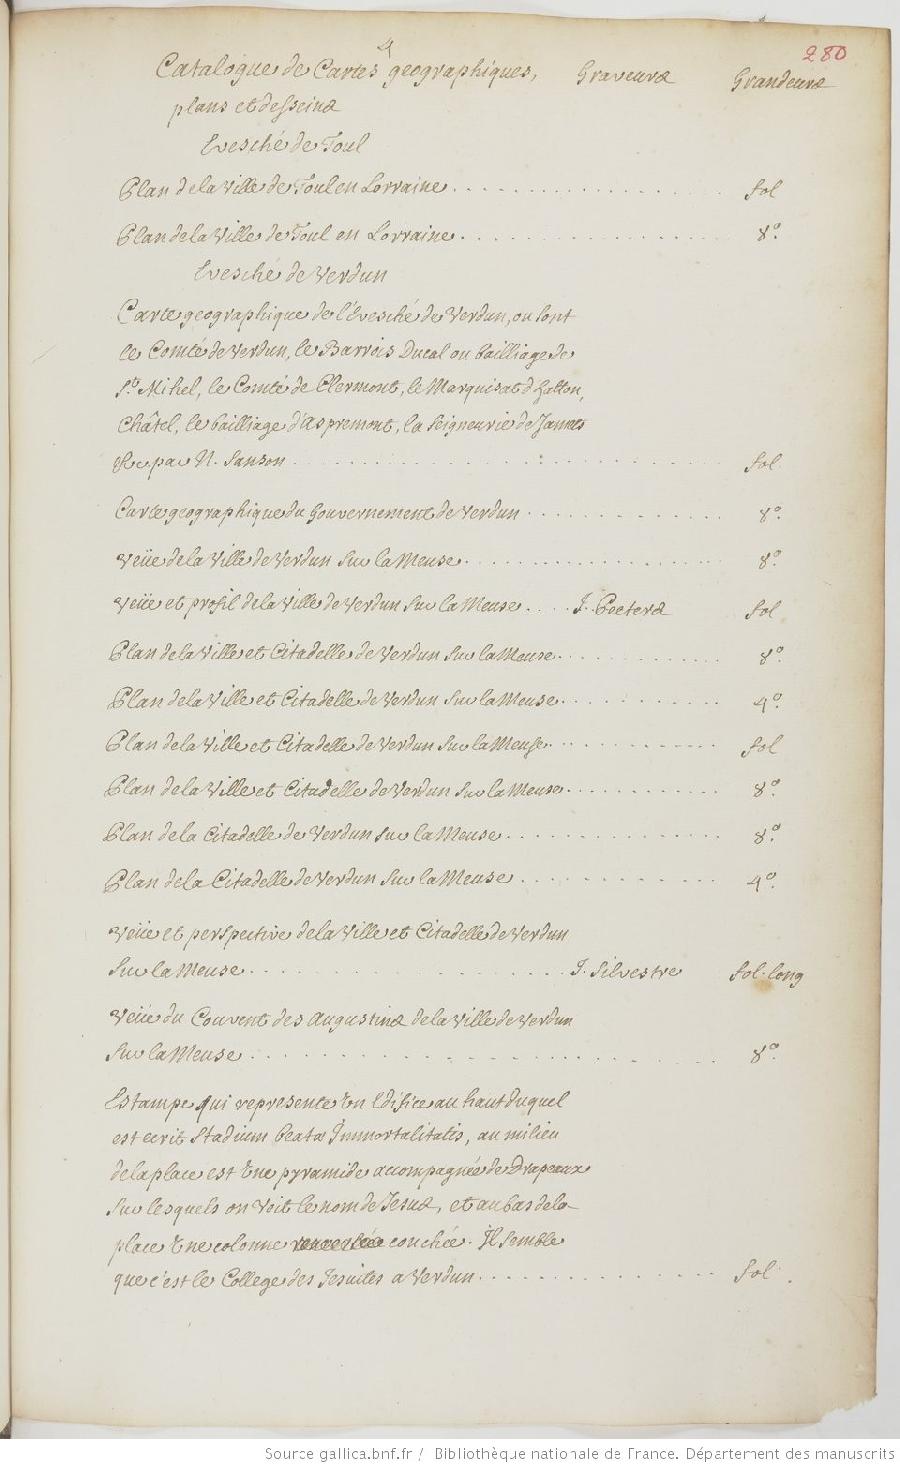 4
280
Catalogue de Cartes geographiques, Graveurs Grandeurs
plans et desseins
Evesché de Toul
Plan de la Ville de Toul en Lorraine . . . . . . . . . . fol
Plan de la Ville de Toul en Lorraine . . . . . . . . . . 8º.
Evesché de Verdun
Carte geographique de l'Evesché de Verdun, ou sont
le Comté de Verdun, le Barrois Ducal ou bailliage de
St. Mihel, le Comté de Clermont, le Marquisat d'Hatton,
Châtel, le bailliage d'Aspremont, la Seigneurie de Jamets
&c par N. Sanson . . . . . . . . . . fol.
Carte geographique du Gouvernement de Verdun . . . . . . . . . . 8º.
Veüe de la Ville de Verdun sur la Meuse . . . . . . . . . . 8º.
Veüe et profil de la Ville de Verdun sur la Meuse . . . . J. Peeters fol
Plan de la Ville et Citadelle de Verdun sur la Meuse . . . . . . . . . . 8º.
Plan de la Ville et Citadelle de Verdun sur la Meuse . . . . . . . . . . 4º.
Plan de la Ville et Citadelle de Verdun sur la Meuse . . . . . . . . . . fol
Plan de la Ville et Citadelle de Verdun sur la Meuse . . . . . . . . . . 8º.
Plan de la Citadelle de Verdun sur la Meuse . . . . . . . . . . 8º.
Plan de la Citadelle de Verdun sur la Meuse . . . . . . . . . . 4º.
Veüe et perspective de la Ville et Citadelle de Verdun
sur la Meuse . . . . . . . . . . I. Silvestre fol. long
Veüe du Couvent des Augustins de la Ville de Verdun
sur la Meuse . . . . . . . . . . 8º.
Estampe qui represente Un Edifice au haut duquel
est ecrit Stadium beatae Immortalitatis, au milieu
de la place est Une pyramide accompagnée de Drapeaux
sur lesquels on voit le nom de Jesus, et au bas de la
place Une colonne couchée. Il semble
que c'est le College des Jesuites a Verdun . . . . . . . . . . fol.
Source gallica.bnf.fr / Bibliothèque nationale de France. Département des manuscrits